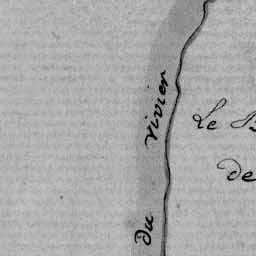 du vivier
Le
de